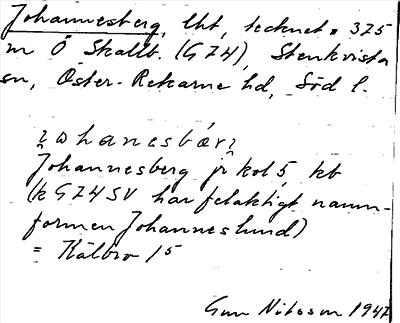 Johannesberg, lht, tecknet o 375
m Ö Skallb. (G74), Stenkvista
sn, Öster-Rekarne hd, Söd l.
johanesbær
Johannesberg jr kol 5 kb
(k G74SV har felaktigt namn-
formen Johanneslund)
= Kälbro 1⁵
Gun Nilsson 1947